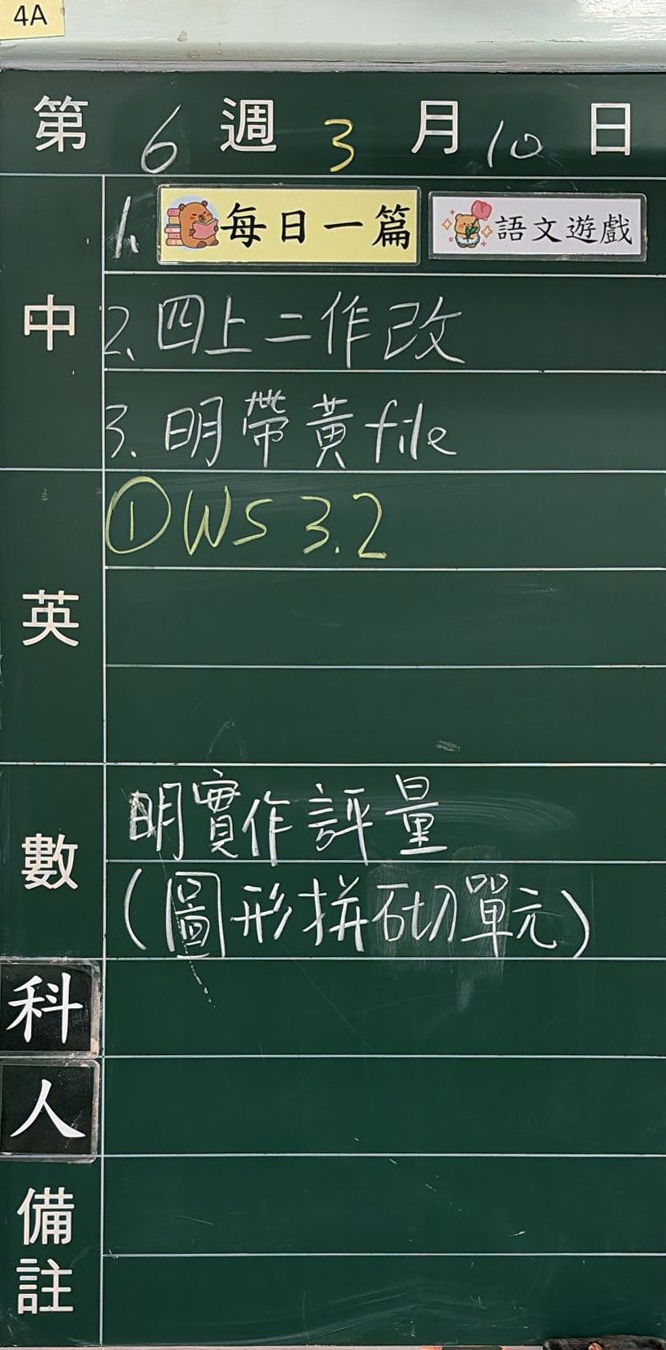 4A
第 6 週 3 月 10 日
中
1. 每日一篇 語文遊戲
2. 四上二作改
3. 明帶黃file
英
①WS 3.2
數
明實作評量
(圖形拼砌單元)
科
人
備註